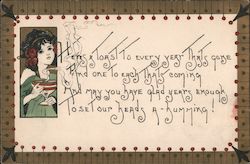 Here's a toast to every year that's gone
And one to each that's coming
And may you have glad years enough
To set our heads a-humming!